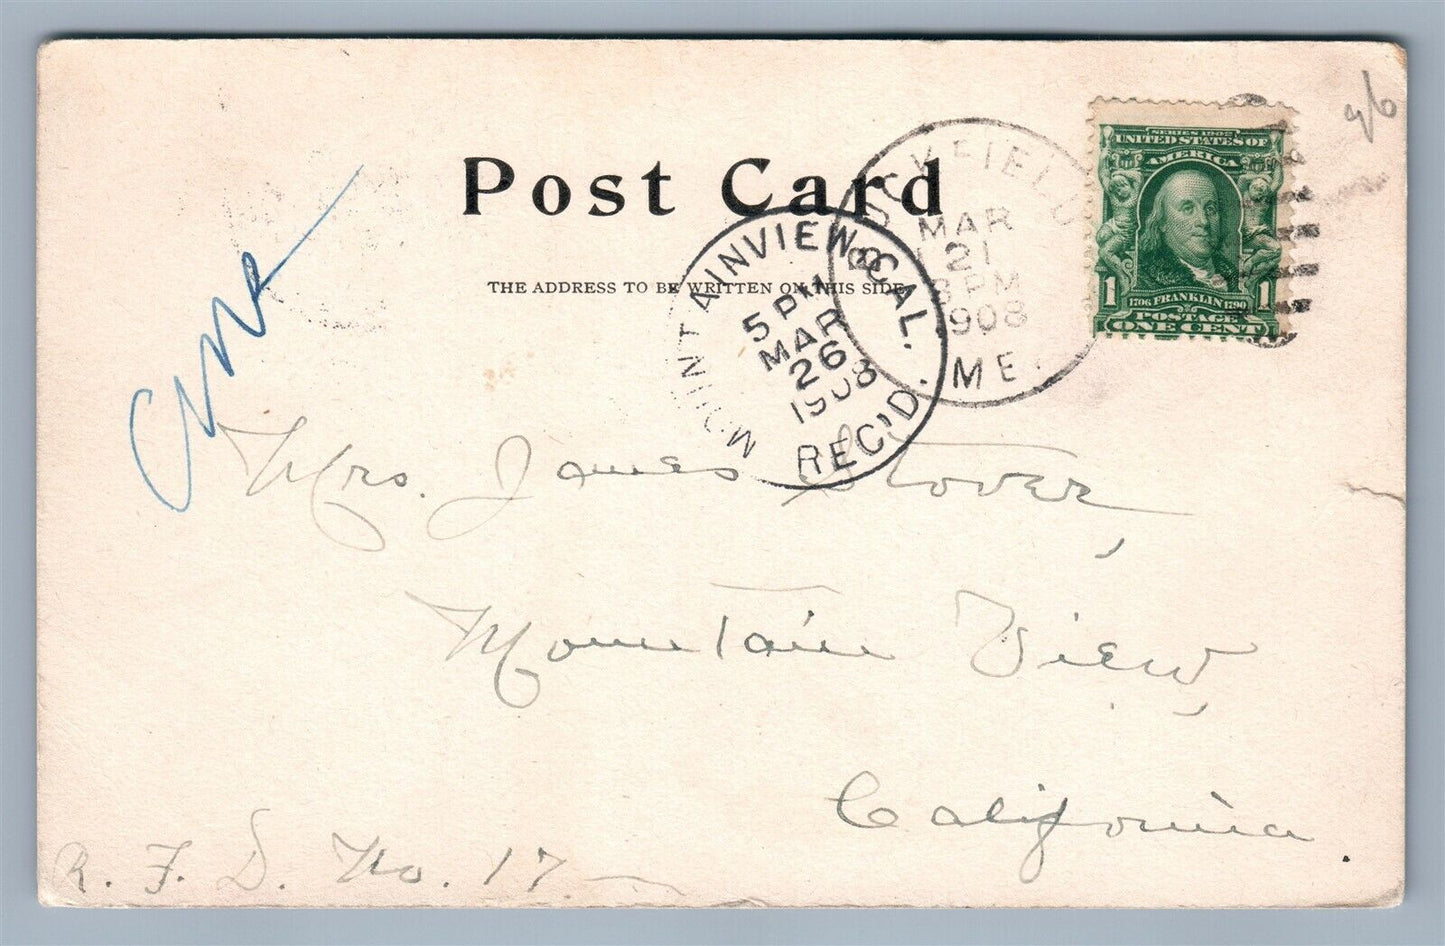 Post Card
THE ADDRESS TO BE WRITTEN ON THIS SIDE
MOUNTAINVIEW, CAL.
5 PM
MAR
26
1908
REC'D.
MAR
21
8 PM
1908
ME.
SERIES 1902
UNITED STATES OF
AMERICA
1706 FRANKLIN 1790
1 1
POSTAGE
ONE CENT
Mrs. James Stover,
Mountain View,
California.
R. F. D. No. 17